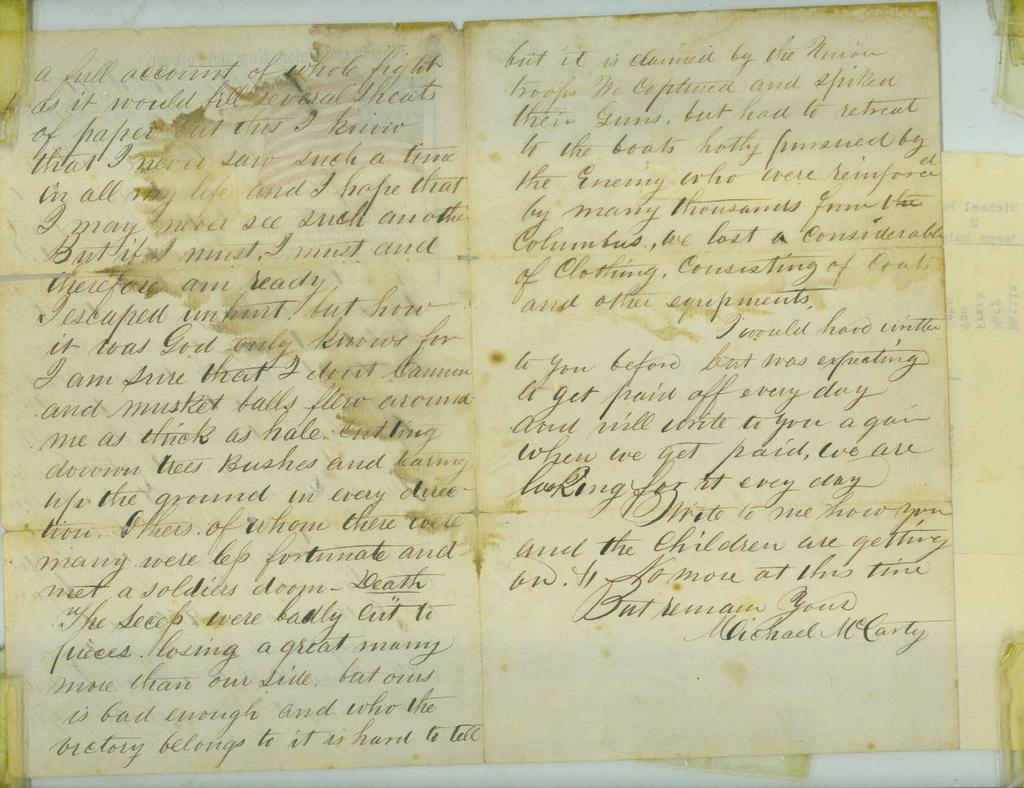 a full account of whole fight
as it would fill several Sheats
of paper but this I know
that I never saw such a time
in all my life and I hope that
I may never see such another
But if I must, I must and
therefore am ready,
I escaped unhurt, but how
it was God only knows for
I am sure that I dont Cannon
and musket balls flew around
me as thick as hale. Cutting
downn trees Bushes and tearing
up the ground in every direc-
tion. Others of whom there were
many were less fortunate and
met a soldiers doom - Death
The Secess were badly cut to
pieces. losing a great many
more than our side. but ours
is bad enough and who the
victory belongs to it is hard to tell
but it is claimed by the Union
troops We Captured and spiked
their Guns, but had to retreat
to the boats hotly pursued by
the Enemy who were reinforced
by many thousands from the
Columbus, we lost a Considerable
of Clothing. Consisting of Coats
and other equipments,
I would have written
to you before but was expecting
to get paid off every day
and will write to you again
when we get paid, we are
looking for it evey day
Write to me how you
and the Children are getting
on. No more at this time
But remain Your
Michael McCarty